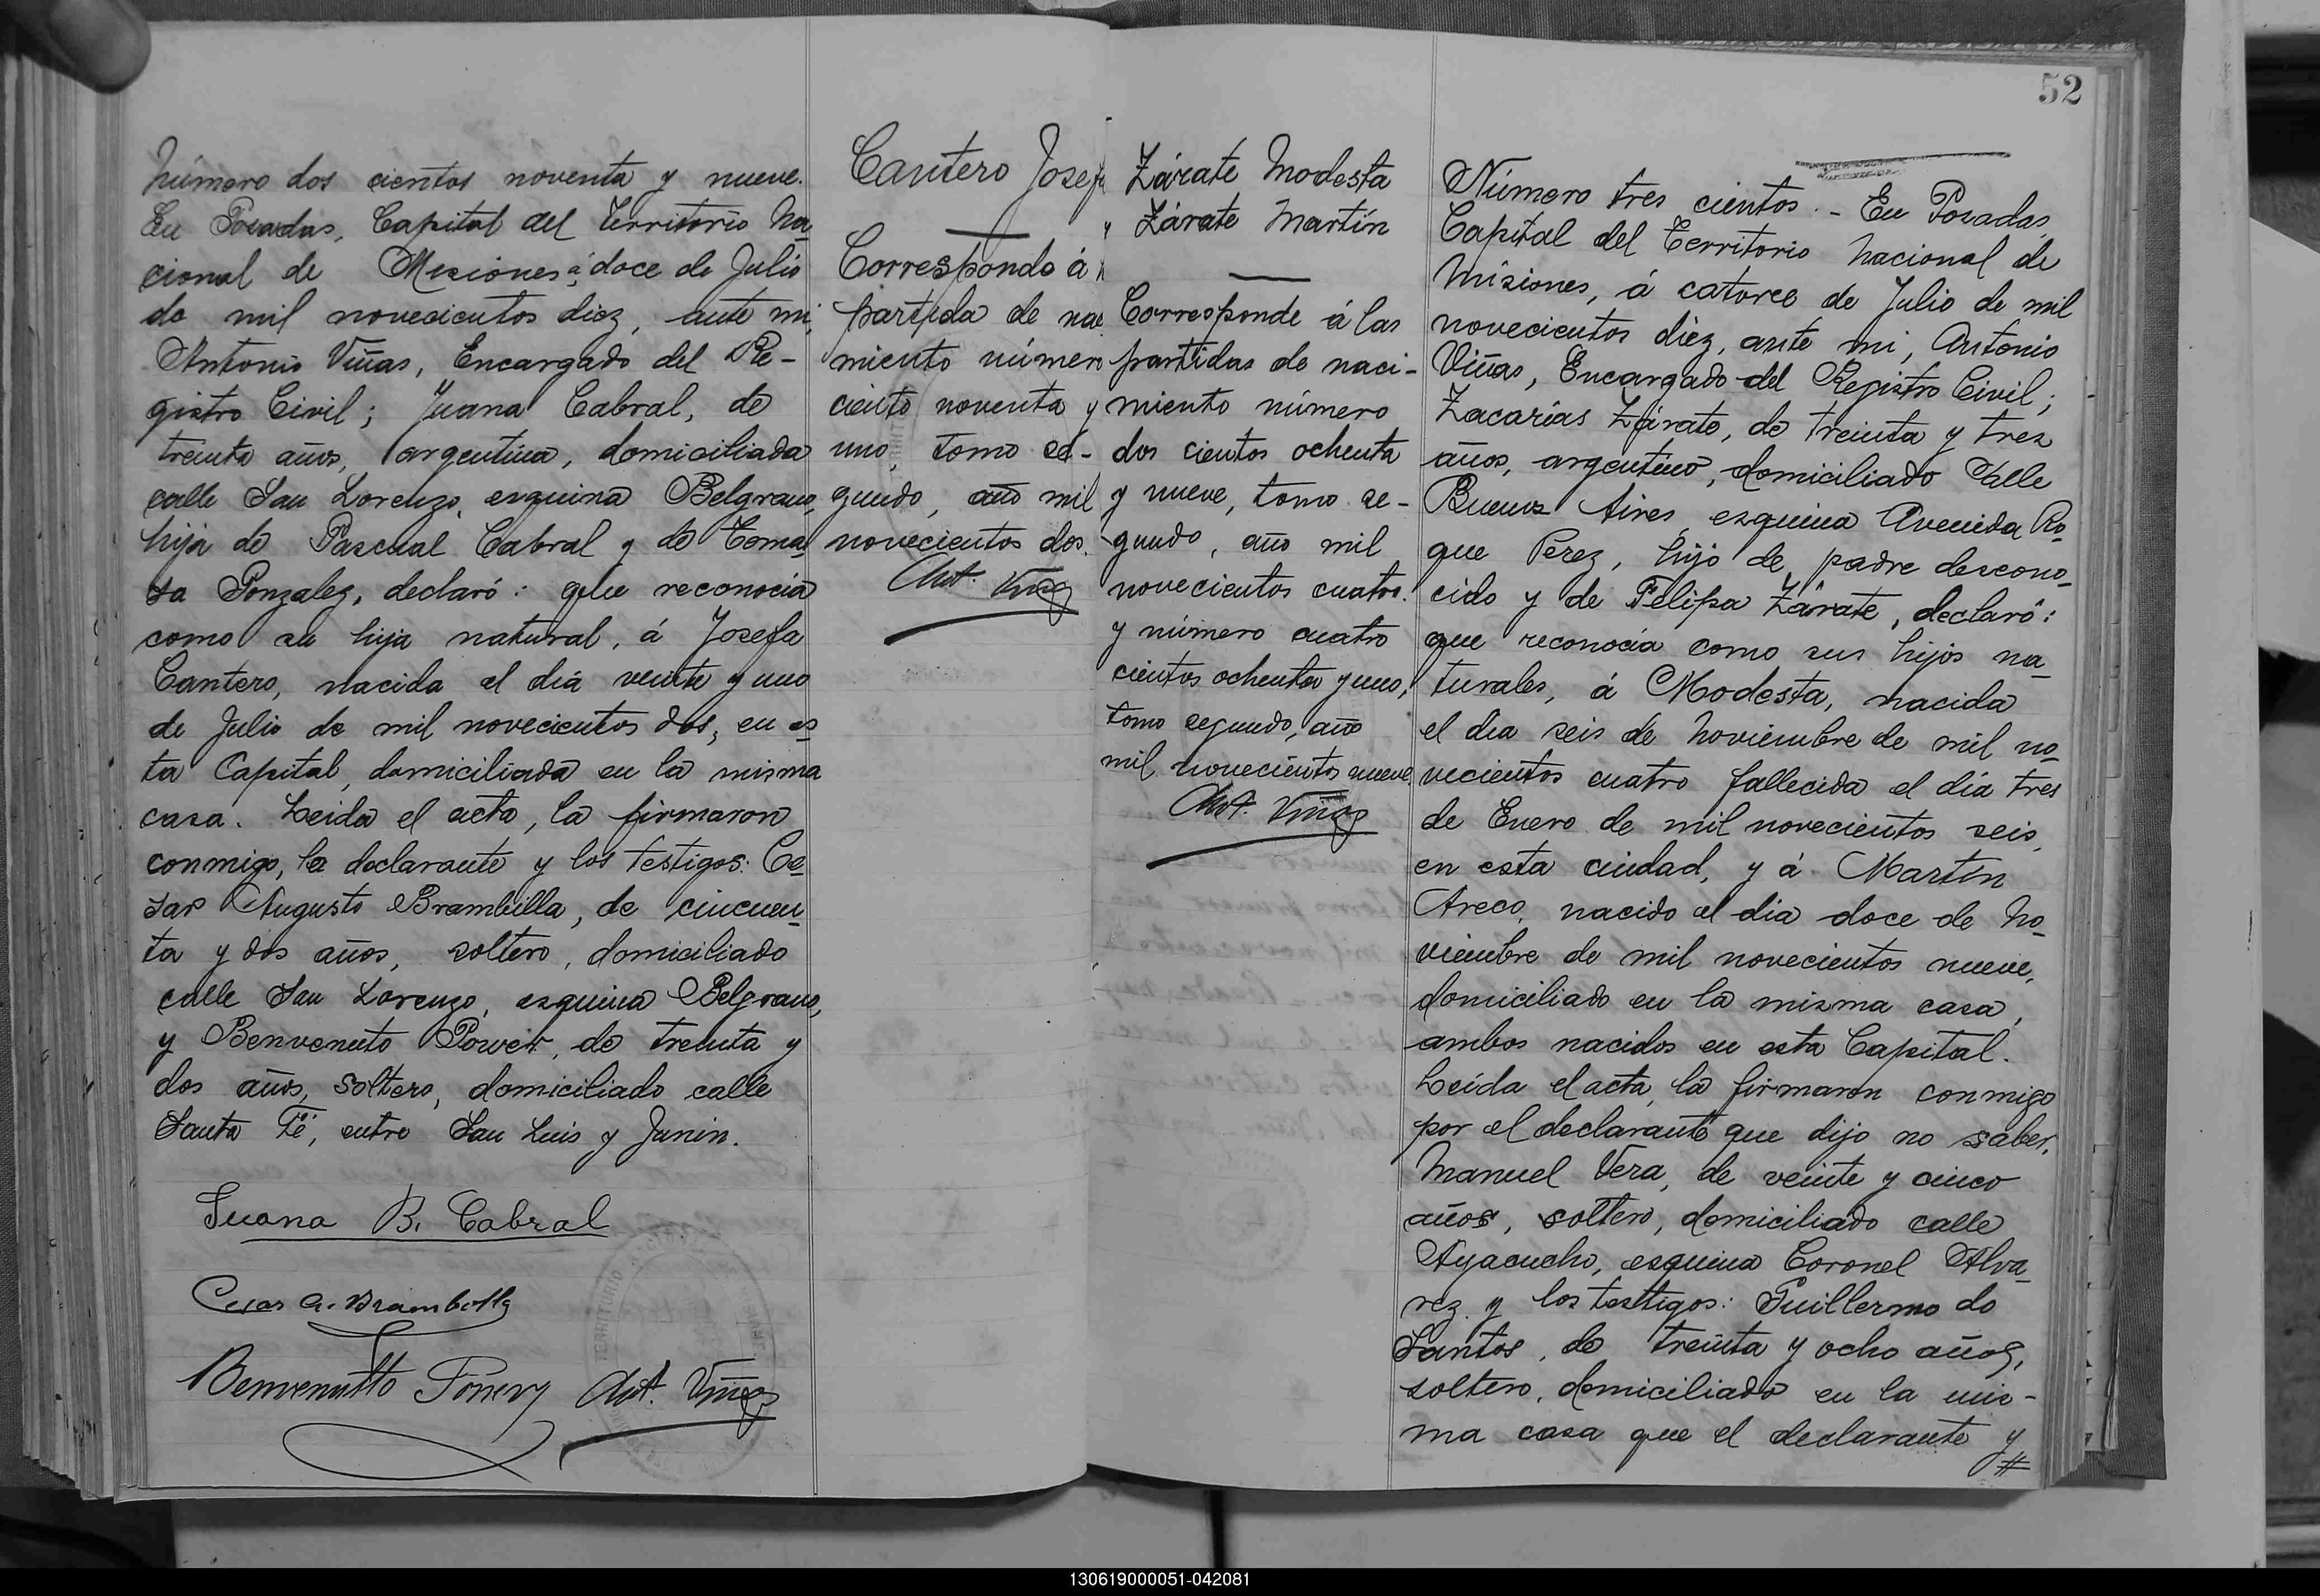 Número dos cientos noventa y nueve.
En Posadas, Capital del Territorio Na
cional de Misiones, á doce de Julio
de mil novecientos diez, ante mi,
Antonio Viñas, Encargado del Re-
gistro Civil; Juana Cabral, de
treinta años, argentina, domiciliada
calle San Lorenzo, esquina Belgrano,
hija de Pascual Cabral y de Toma
sa Gonzalez, declaró: que reconocia
como su hija natural, á Josefa
Cantero, nacida el dia veinte y uno
de Julio de mil novecientos dos, en es
ta Capital, domiciliada en la misma
casa. Leida el acta, la firmaron
conmigo, la declarante y los testigos: Ce
sar Augusto Brambilla, de cincuen
ta y dos años, soltero, domiciliado
calle San Lorenzo, esquina Belgrano,
y Benvenuto Power, de treinta y
dos años, soltero, domiciliado calle
Santa Fé, entre San Luis y Junin.
Juana B. Cabral
Cesar A. Brambilla
Benvenutto Ant. Viñas
Cantero Josefa
Corresponde á
partida de nac
miento número
ciento noventa y
uno, tomo se-
gundo, año mil
novecientos dos.
Ant. Viñas
52
Zárate Modesta
" Zárate Martín
Corresponde á las
partidas de naci-
miento número
dos cientos ochenta
y nueve, tomo se-
gundo, año mil
novecientos cuatro.
y número cuatro
cientos ochenta y uno,
tomo segundo, año
mil novecientos nueve.
Ant. Viñas
Número tres cientos. - En Posadas,
Capital del Territorio Nacional de
Misiones, á catorce de Julio de mil
novecientos diez, ante mi, Antonio
Viñas, Encargado del Registro Civil;
Zacarías Zárate, de treinta y tres
años, argentino, domiciliado Calle
Buenos Aires esquina Avenida Ro
que Perez, hijo de padre descono
cido y de Felipa Zárate, declaró:
que reconocia como sus hijos na
turales, á Modesta, nacida
el dia seis de Noviembre de mil no
vecientos cuatro fallecida el día tres
de Enero de mil novecientos seis,
en esta ciudad, y á Martín
Areco, nacido el dia doce de No
viembre de mil novecientos nueve,
domiciliado en la misma casa,
ambos nacidos en esta Capital.
Leída el acta, la firmaron conmigo
por el declarante que dijo no saber,
Manuel Vera, de veinte y cinco
años, soltero, domiciliado calle
Ayacucho, esquina Coronel Alva
rez y los testigos: Guillermo do
Santos, de treinta y ocho años,
soltero, domiciliado en la mis-
ma casa que el declarante y
130619000051-042081